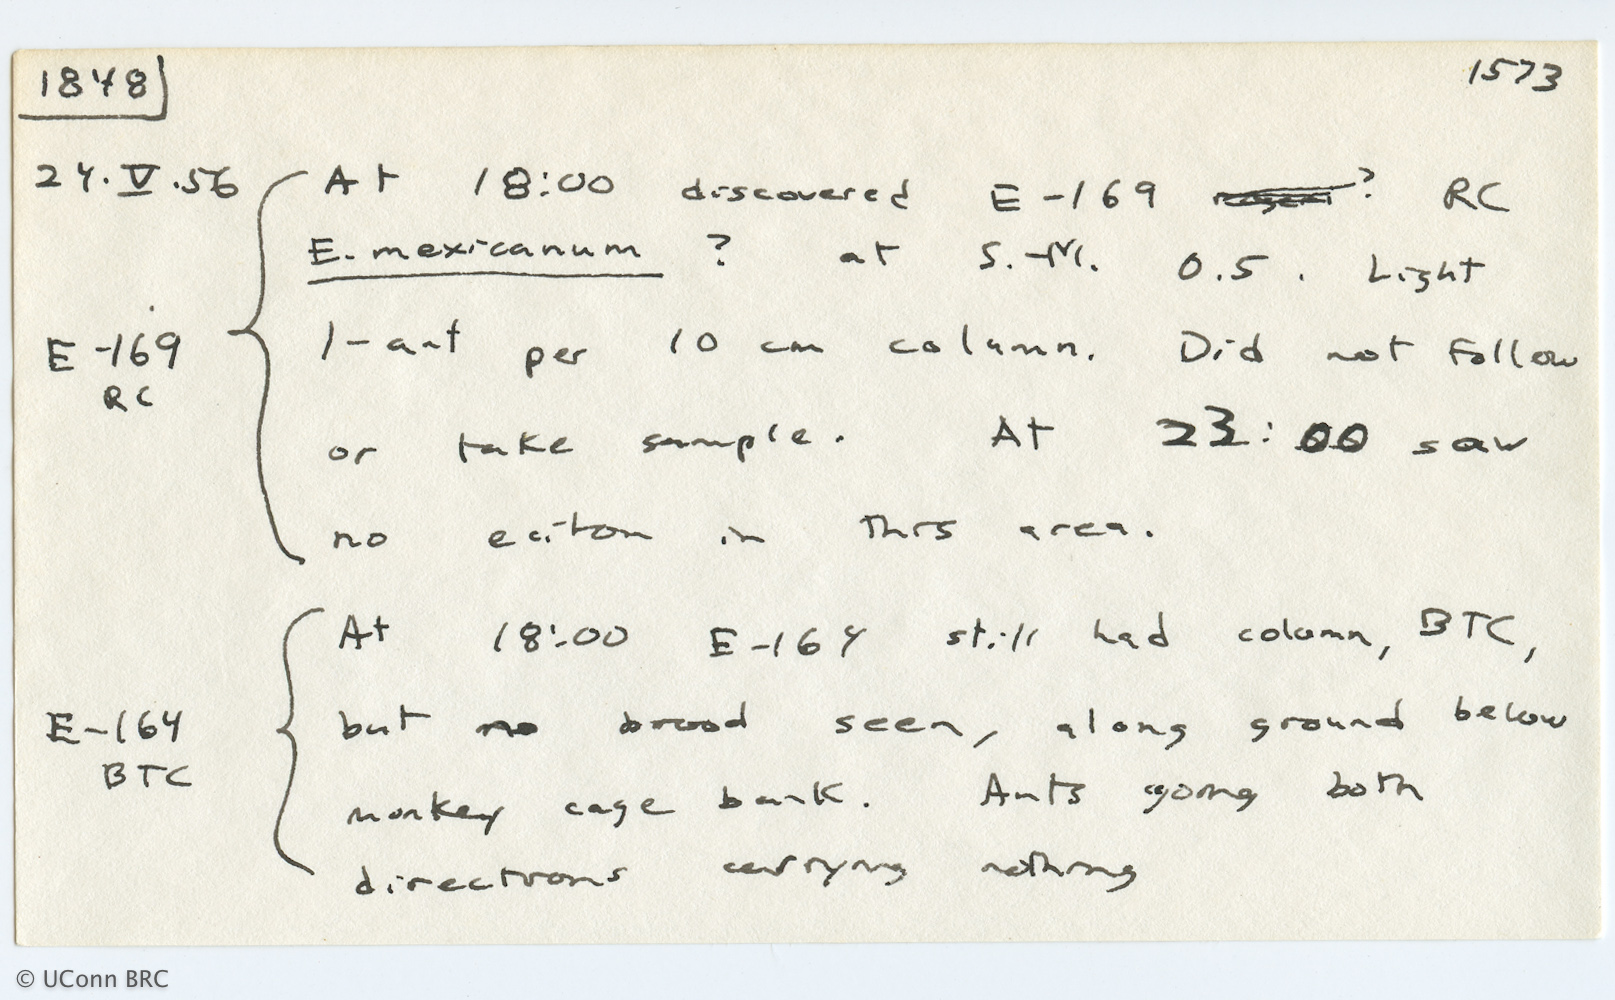 1848 1573
24.V.56 At 18:00 discovered E-169 ? RC
E. mexicanum ? at S.-M. 0.5. Light
E-169 1-ant per 10 cm column. Did not follow
RC
or take sample. At 23:00 saw
no eciton in this area.
At 18:00 E-164 still had column, BTC,
E-164 but no brood seen, along ground below
BTC
monkey cage bank. Ants going both
directions carrying nothing
© UConn BRC